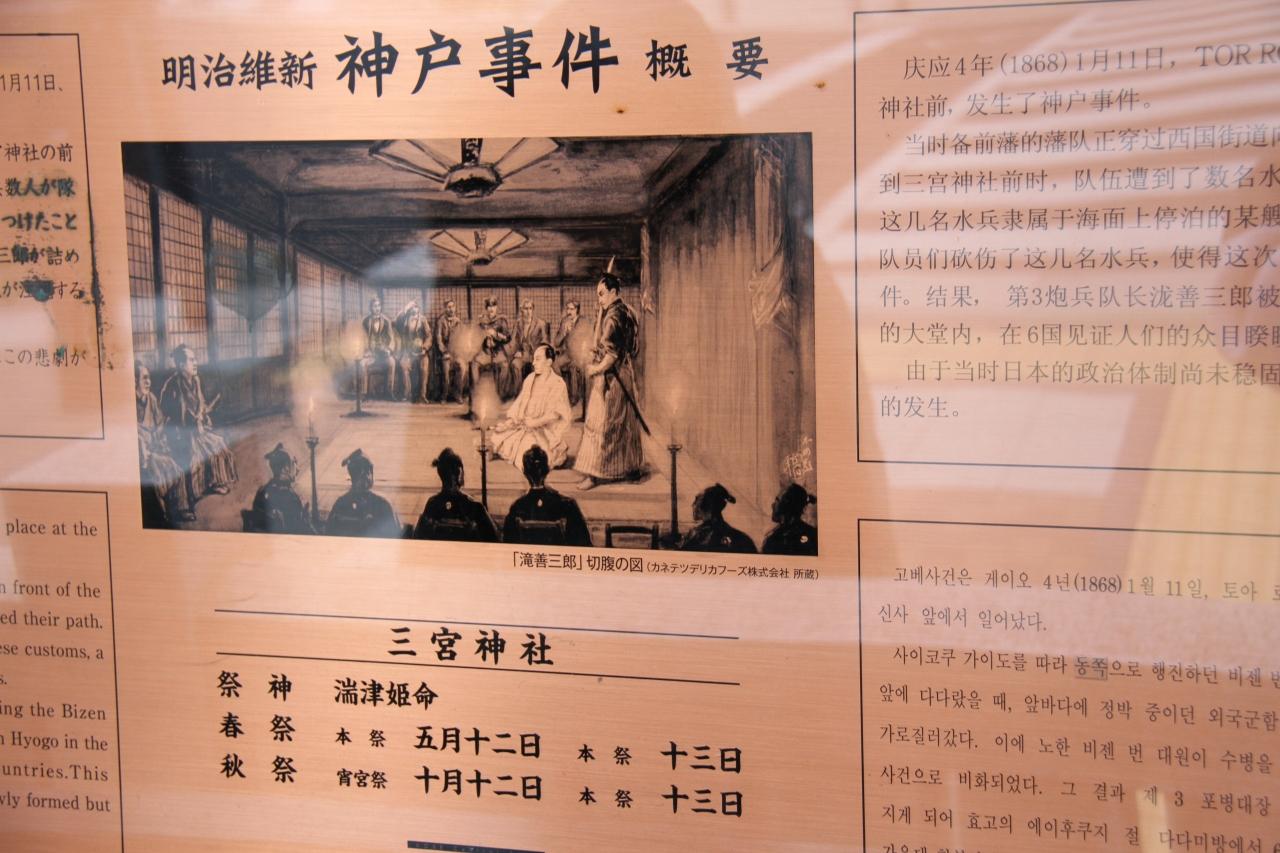 明治維新 神戸事件 概要
1月11日、
神社の前
数人が隊
つけたこと
三郎が詰め
この悲劇が
place at the
front of the
ed their path.
ese customs, a
s.
ing the Bizen
Hyogo in the
untries.This
wly formed but
「滝善三郎」切腹の図(カネテツデリカフーズ株式会社 所蔵)
三宮神社
祭神 湍津姫命
春祭 本祭 五月十二日 本祭 十三日
秋祭 宵宮祭 十月十二日 本祭 十三日
庆应4年(1868)1月11日，TOR
神社前，发生了神户事件。
当时备前藩的藩队正穿过西国街道向
到三宫神社前时，队伍遭到了数名水
这几名水兵隶属于海面上停泊的某艘
队员们砍伤了这几名水兵，使得这次
件。结果， 第3炮兵队长泷善三郎被
的大堂内，在6国见证人们的众目睽睽
由于当时日本的政治体制尚未稳固
的发生。
고베사건은 게이오 4년(1868)1월 11일, 토아
신사 앞에서 일어났다.
사이코쿠 가이도를 따라 동쪽으로 행진하던 비젠 번
앞에 다다랐을 때, 앞바다에 정박 중이던 외국군함
가로질러갔다. 이에 노한 비젠 번 대원이 수병을
사건으로 비화되었다. 그 결과 제 3 포병대장
지게 되어 효고의 에이후쿠지 절 다다미방에서